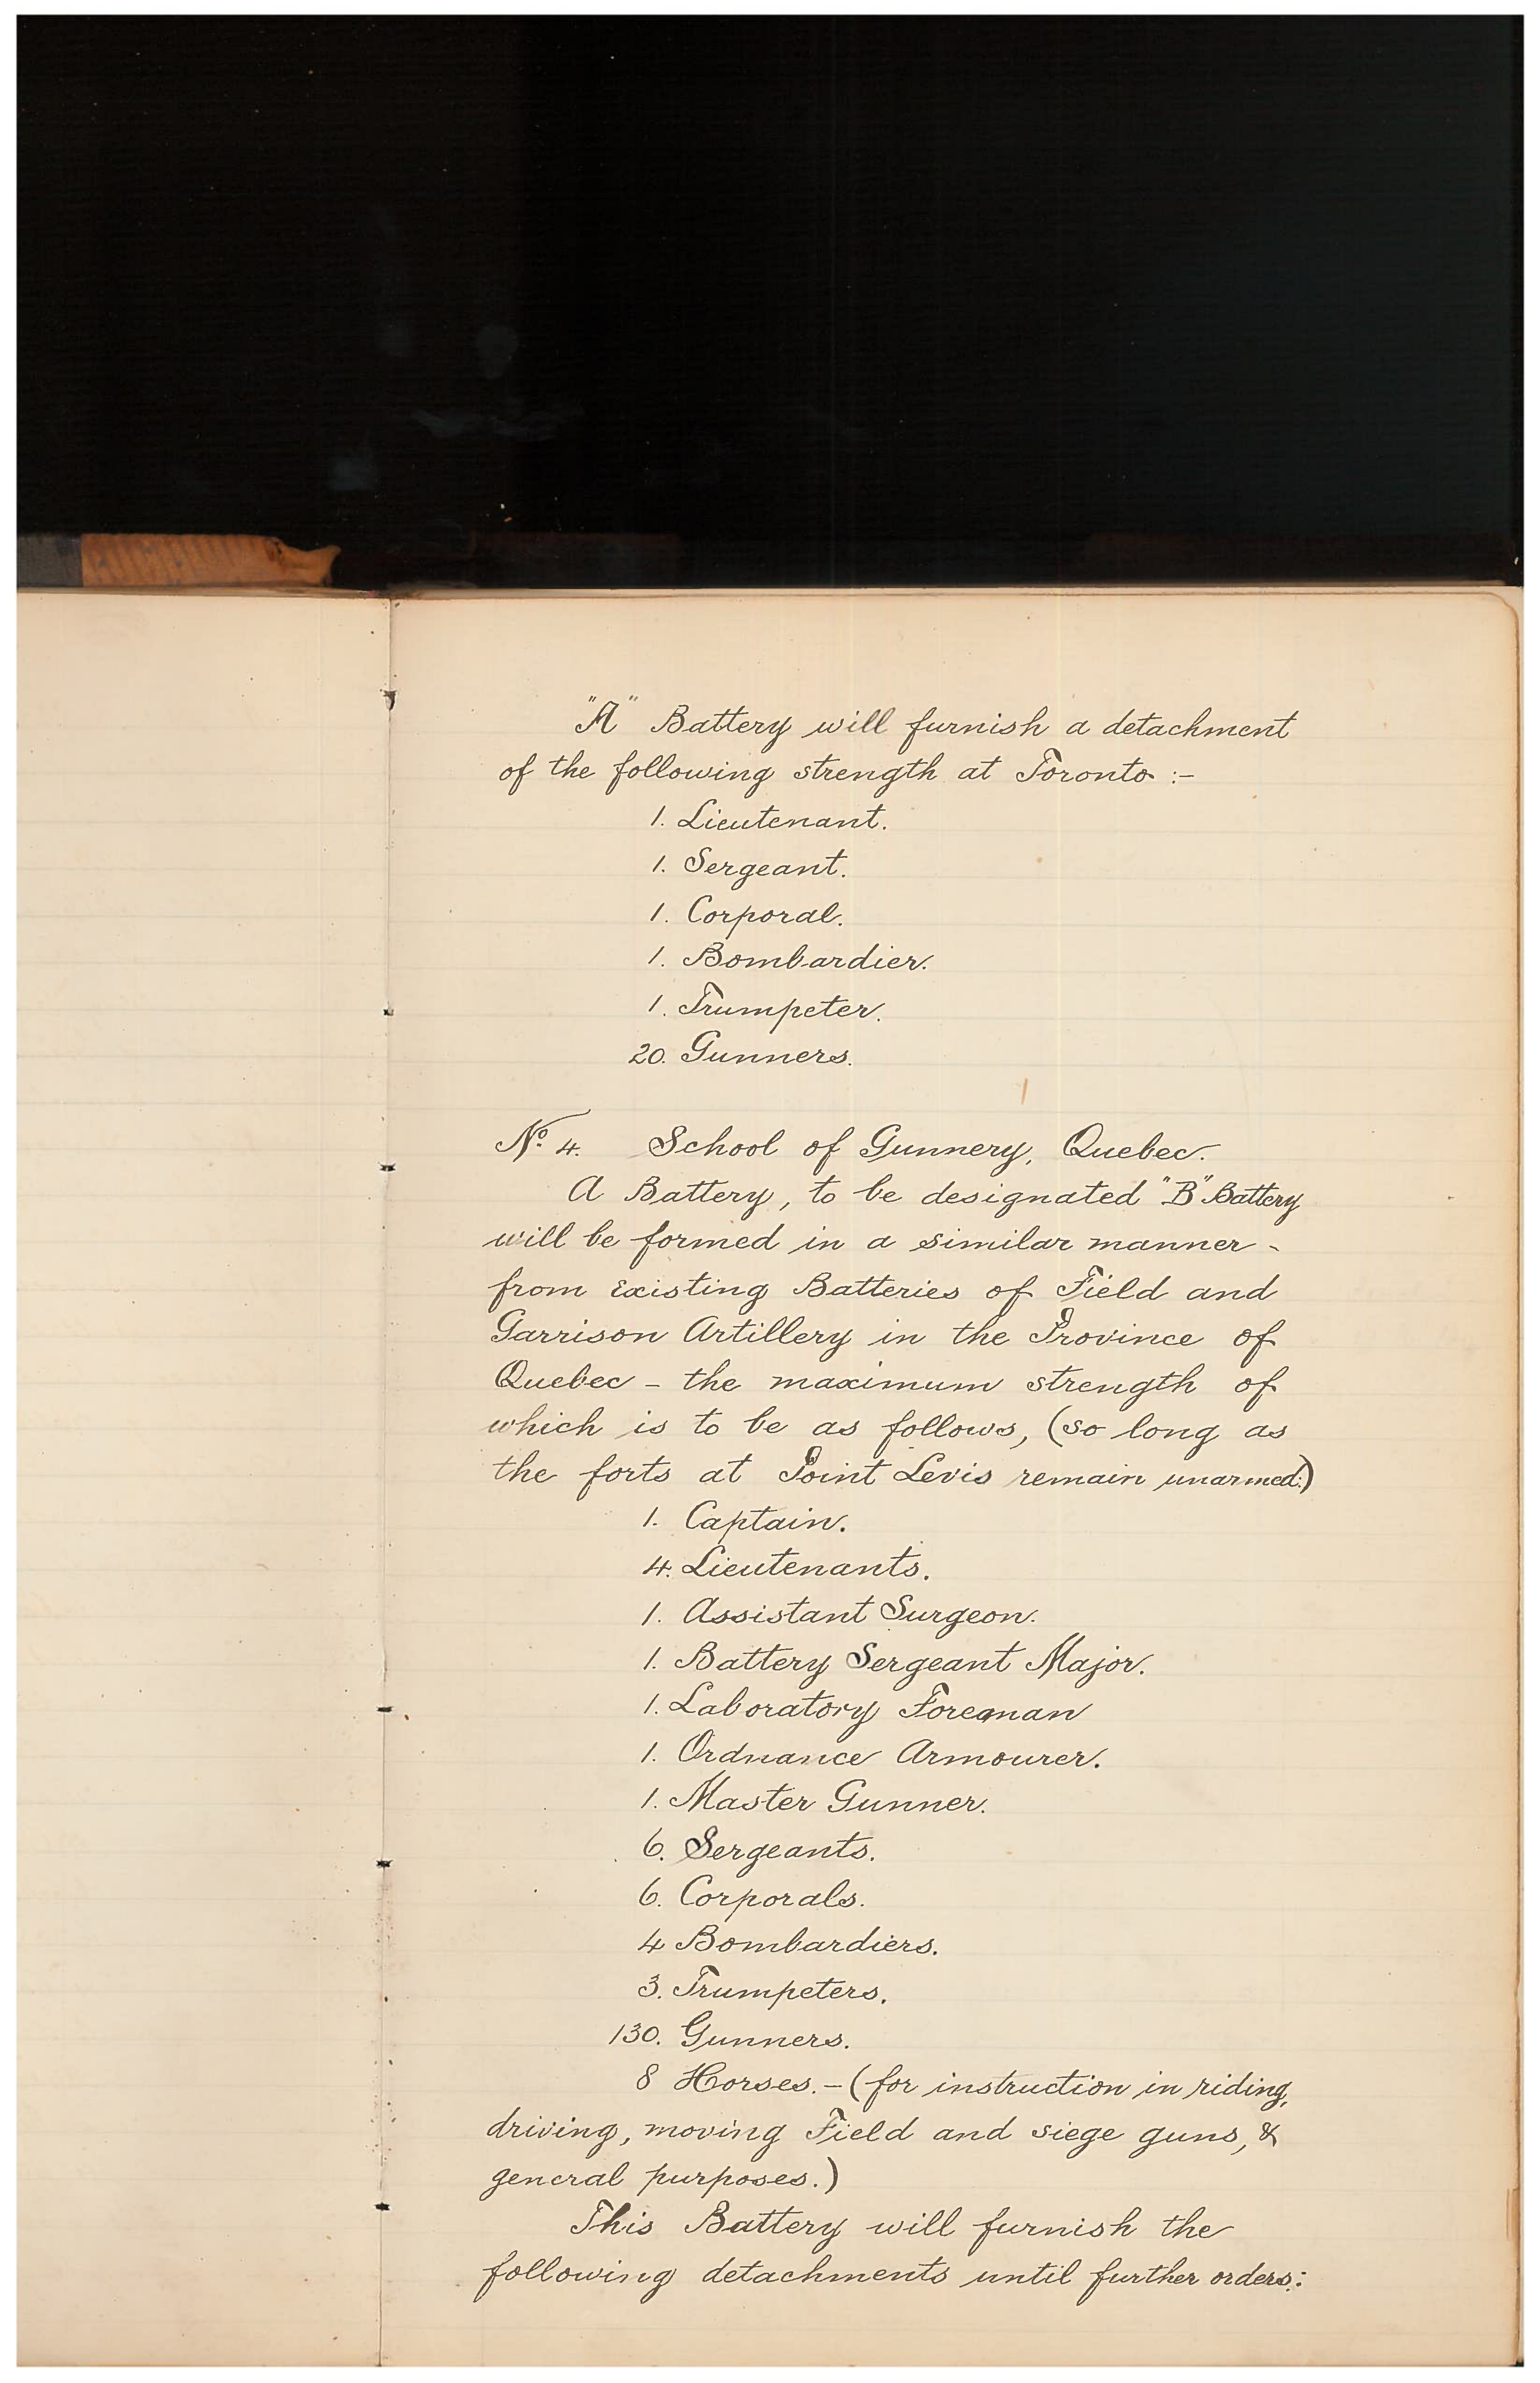 "A" Battery will furnish a detachment
of the following strength at Toronto :-
1. Lieutenant.
1. Sergeant.
1. Corporal.
1. Bombardier.
1. Trumpeter.
20. Gunners.
No. 4. School of Gunnery, Quebec.
A Battery, to be designated "B" Battery
will be formed in a similar manner -
from existing Batteries of Field and
Garrison Artillery in the Province of
Quebec - the maximum strength of
which is to be as follows, (so long as
the forts at Point Levis remain unarmed:)
1. Captain.
4. Lieutenants.
1. Assistant Surgeon.
1. Battery Sergeant Major.
1. Laboratory Foreman
1. Ordnance Armourer.
1. Master Gunner.
6. Sergeants.
6. Corporals.
4 Bombardiers.
3. Trumpeters.
130. Gunners.
8 Horses. - (for instruction in riding,
driving, moving Field and siege guns, &
general purposes.)
This Battery will furnish the
following detachments until further orders: